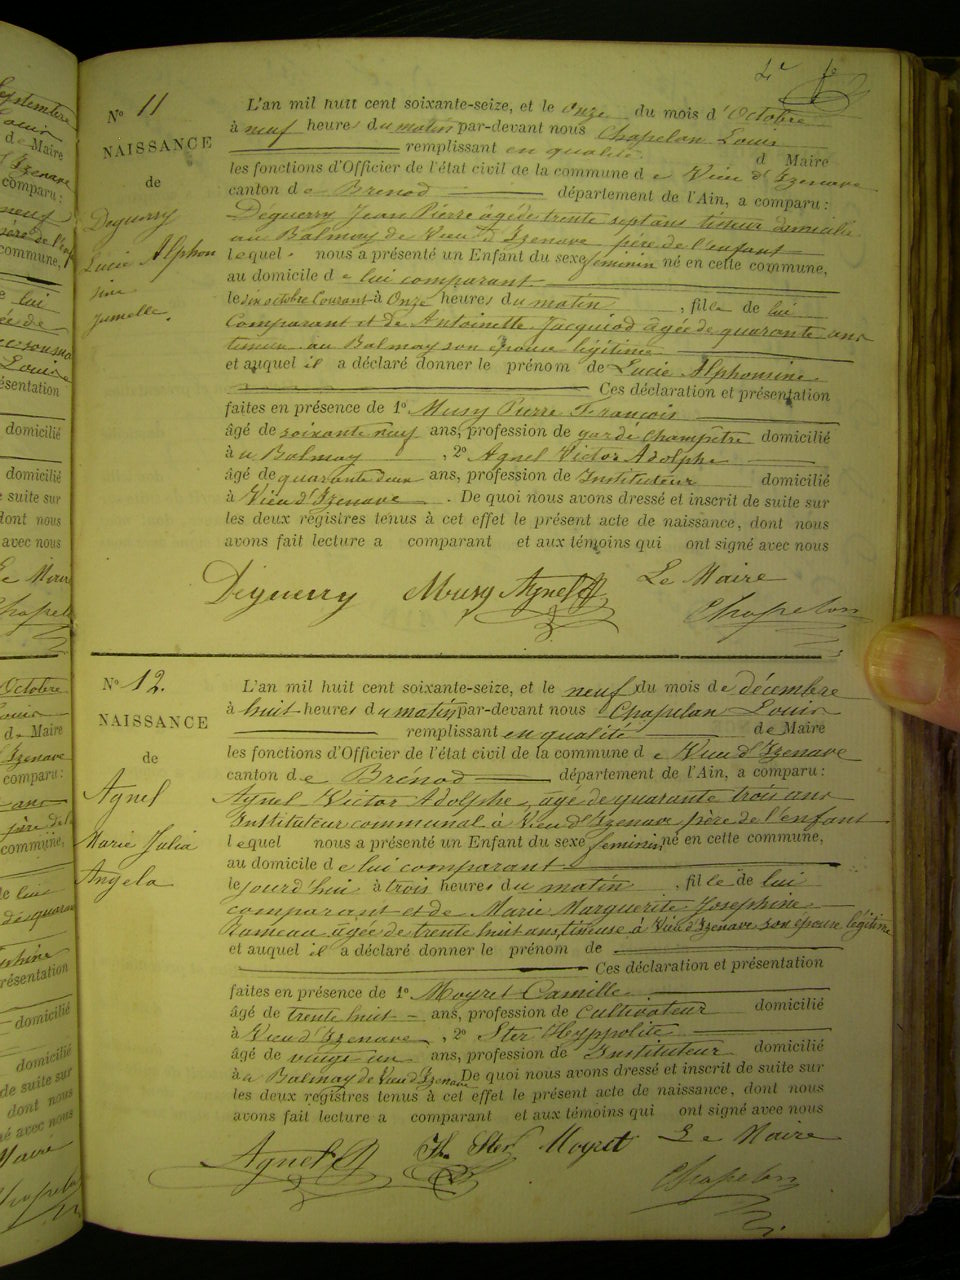 4e
N° 11
NAISSANCE
de
Deguerry
Lucie Alphon
sine
Jumelle.
L'an mil huit cent soixante-seize, et le onze du mois d'Octobre
à neuf heures du matin par-devant nous Chapelan Louis
remplissant en qualité d Maire
les fonctions d'Officier de l'état civil de la commune de Vieu d'Izenave
canton de Brenod département de l'Ain, a comparu :
Déguerry Jean Pierre âgé de trente sept ans tisseur domicilié
au Balmay de Vieu d'Izenave père de l'enfant
lequel nous a présenté un Enfant du sexe feminin né en cette commune,
au domicile de lui comparant
le six octobre Courant à Onze heures du matin, fille de lui
Comparant et de Antoinette Jacquiod âgée de quarante ans
au Balmay son épouse légitime
et auquel il a déclaré donner le prénom de Lucie Alphonsine
Ces déclaration et présentation
faites en présence de 1° Musy Pierre François
âgé de soixante neuf ans, profession de garde champêtre domicilié
à u Balmay, 2° Agnel Victor Adolphe
âgé de quarante deux ans, profession de Instituteur domicilié
à Vieu d'Izenave. De quoi nous avons dressé et inscrit de suite sur
les deux registres tenus à cet effet le présent acte de naissance, dont nous
avons fait lecture a comparant et aux témoins qui ont signé avec nous
Déguerry Musy Agnel Le Maire
Chapelan
N° 12.
NAISSANCE
de
Agnel
Marie Julia
Angela
L'an mil huit cent soixante-seize, et le neuf du mois de décembre
à huit heures du matin par-devant nous Chapelan Louis
remplissant en qualité de Maire
les fonctions d'Officier de l'état civil de la commune de Vieu d'Izenave
canton de Brénod département de l'Ain, a comparu :
Agnel Victor Adolphe, âgé de quarante trois ans
Instituteur communal à Vieu d'Izenave père de l'enfant
lequel nous a présenté un Enfant du sexe feminin né en cette commune,
au domicile de lui comparant
le jourd'hui à trois heures du matin, fille de lui
comparant et de Marie Marguerite Josephine
Rameau âgée de trente huit ans, à Vieu d'Izenave son épouse légitime
et auquel il a déclaré donner le prénom de
Ces déclaration et présentation
faites en présence de 1° Moyret Camille
âgé de trente huit ans, profession de cultivateur domicilié
à Vieu d'Izenave, 2° Ster Heyppolite
âgé de vingt un ans, profession de Instituteur domicilié
à u Balmay de Vieu d'Izenave De quoi nous avons dressé et inscrit de suite sur
les deux registres tenus à cet effet le présent acte de naissance, dont nous
avons fait lecture a comparant et aux témoins qui ont signé avec nous
Agnel H. Ster Moyret Le Maire
Chapelan